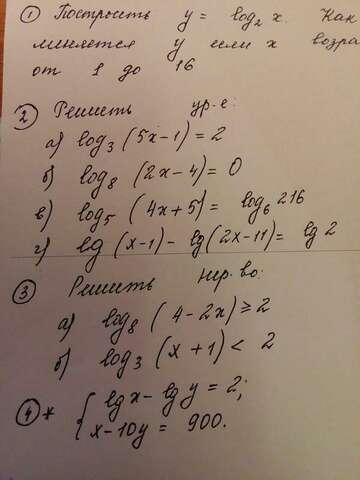 ① Построить y = log₂ x. Как
меняется y если x возра
от 1 до 16
② Решить ур-е:
а) log₃ (5x-1) = 2
б) log₈ (2x-4) = 0
в) log₅ (4x+5) = log₆ 216
г) lg (x-1) - lg (2x-11) = lg 2
③ Решить нер-во:
а) log₈ (4-2x) ≥ 2
б) log₃ (x+1) < 2
④* { lg x - lg y = 2;
x - 10y = 900.